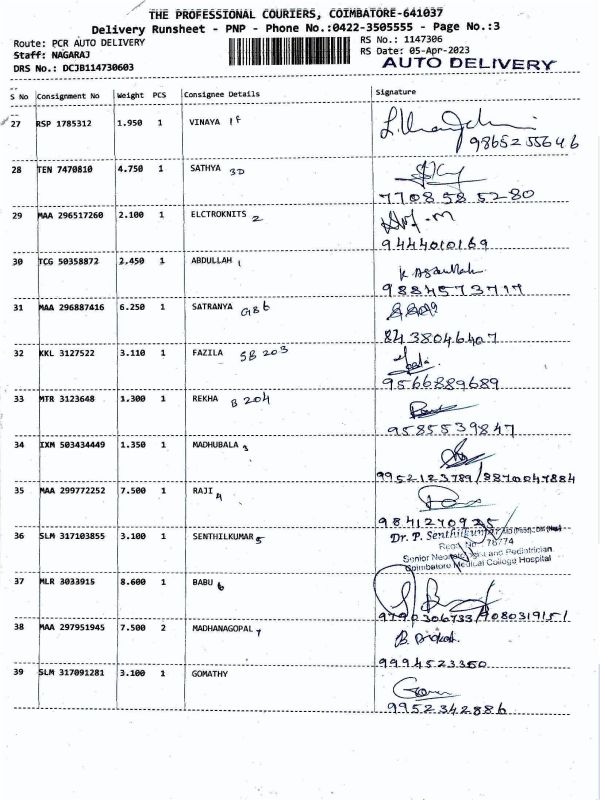 THE PROFESSIONAL COURIERS, COIMBATORE-641037
Delivery Runsheet - PNP - Phone No.:0422-3505555 - Page No.:3
Route: PCR AUTO DELIVERY RS No.: 1147306
Staff: NAGARAJ RS Date: 05-Apr-2023
DRS No.: DCJB114730603 AUTO DELIVERY
S No Consignment No Weight PCS Consignee Details Signature
27 RSP 1785312 1.950 1 VINAYA 1F
9865255646
28 TEN 7470810 4.750 1 SATHYA 3D
7708585280
29 MAA 296517260 2.100 1 ELCTROKNITS 2
9444010169
30 TCG 50358872 2.450 1 ABDULLAH 1
K Abdullah
9884573717
31 MAA 296887416 6.250 1 SATRANYA G86
8438046407
32 KKL 3127522 3.110 1 FAZILA SB 203
9566889689
33 MTR 3123648 1.300 1 REKHA B 204
9585539847
34 IXM 503434449 1.350 1 MADHUBALA 3
9952123789/8870047884
35 MAA 299772252 7.500 1 RAJI 4
9841270925
36 SLM 317103855 3.100 1 SENTHILKUMAR 5
Dr. P. Senthilkumar
Regn. No.: 76774
Senior Neonatologist and Pediatrician
Coimbatore Medical College Hospital
37 MLR 3033915 8.600 1 BABU 6
9790306733/9080319151
38 MAA 297951945 7.500 2 MADHANAGOPAL 7
9994523350
39 SLM 317091281 3.100 1 GOMATHY
9952342886